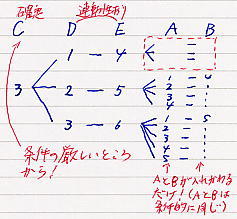 確定 連動性あり
C D E A B
1 - 4
3 2 - 5
3 - 6
1 - 4
2 -
3 -
4 -
1 - 5
2 -
3 -
4 -
5 -
条件の厳しいところ
から!
AとBが入れかわる
だけ!(AとBは
条件的に同じ)